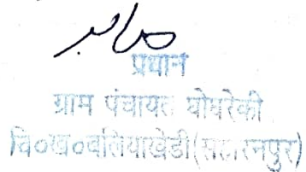 صابر
प्रधान
ग्राम पंचायत घोघरेकी
वि०ख०बलियाखेडी(सहारनपुर)